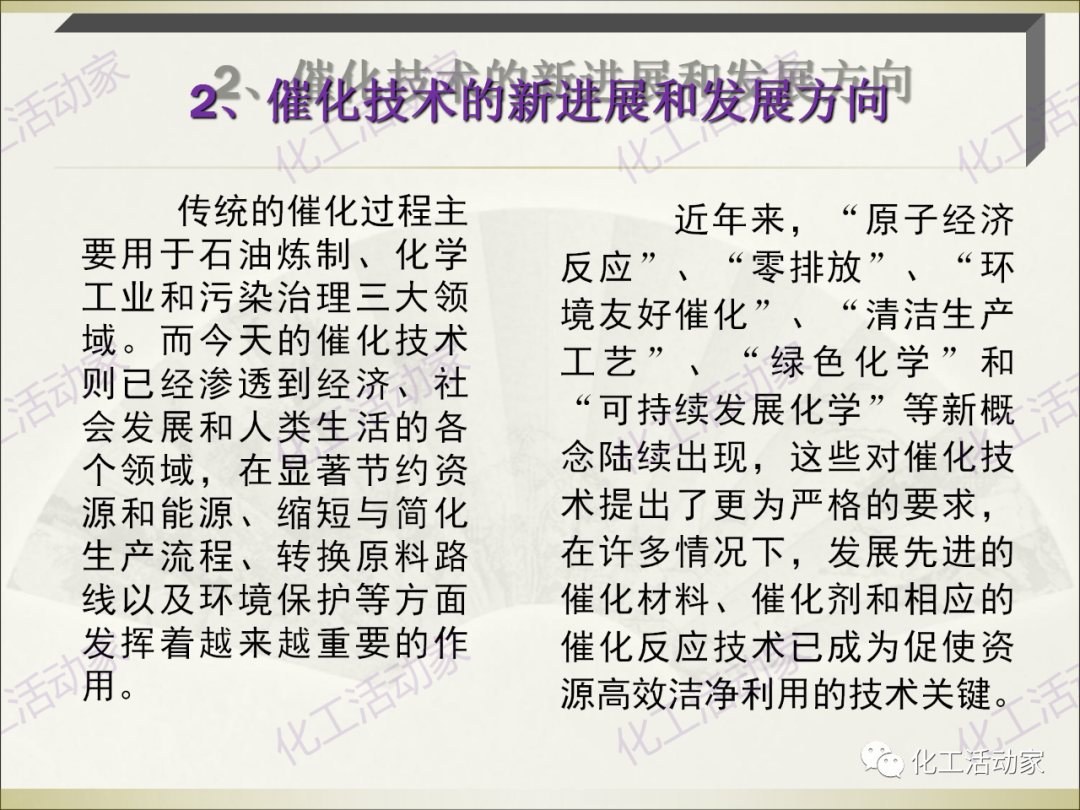 2、催化技术的新进展和发展方向
传统的催化过程主
要用于石油炼制、化学
工业和污染治理三大领
域。而今天的催化技术
则已经渗透到经济、社
会发展和人类生活的各
个领域，在显著节约资
源和能源、缩短与简化
生产流程、转换原料路
线以及环境保护等方面
发挥着越来越重要的作
用。
近年来，“原子经济
反应”、“零排放”、“环
境友好催化”、“清洁生产
工艺”、“绿色化学”和
“可持续发展化学”等新概
念陆续出现，这些对催化技
术提出了更为严格的要求，
在许多情况下，发展先进的
催化材料、催化剂和相应的
催化反应技术已成为促使资
源高效洁净利用的技术关键。
化工活动家